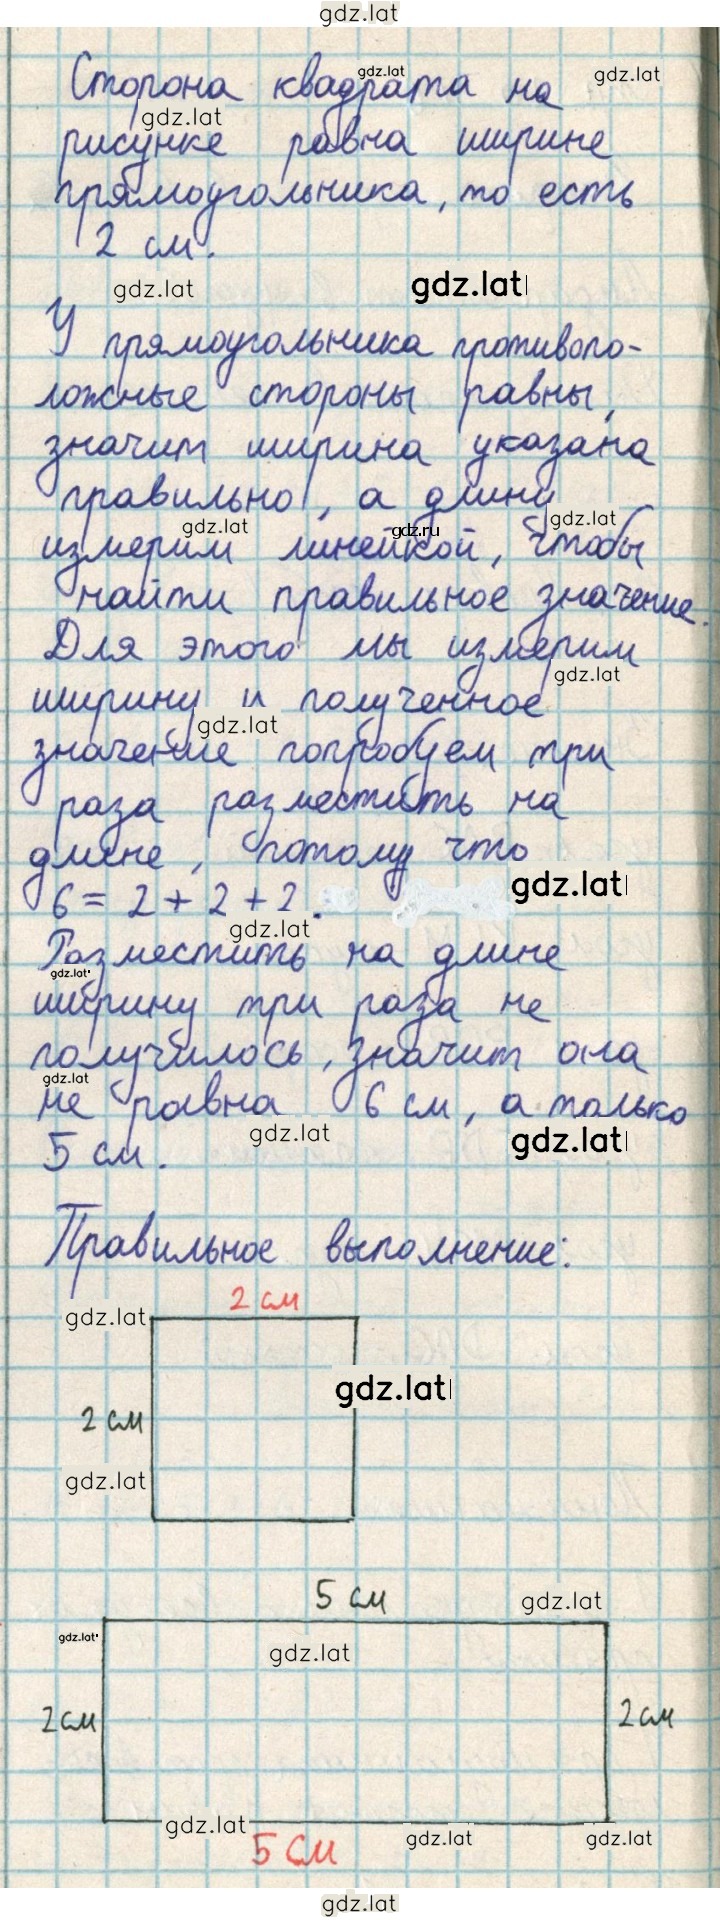 gdz.lat
Сторона квадрата на
gdz.lat
gdz.lat
gdz.lat
рисунке равна ширине
прямоугольника, то есть
2 см.
gdz.lat
gdz.lat
У прямоугольника противопо-
ложные стороны равны,
значит ширина указана
правильно, а длину
gdz.lat
gdz.ru
gdz.lat
измерим линейкой, чтобы
найти правильное значение.
Для этого мы измерим
gdz.lat
ширину и полученное
gdz.lat
значение попробуем три
раза разместить на
длине, потому что
gdz.lat
6 = 2 + 2 + 2.
gdz.lat
Разместить на длине
gdz.lat
ширину три раза не
получилось, значит она
gdz.lat
не равна 6 см, а только
gdz.lat
gdz.lat
5 см.
Правильное выполнение:
2 см
gdz.lat
gdz.lat
2 см
gdz.lat
5 см
gdz.lat
gdz.lat
gdz.lat
2 см
2 см
gdz.lat
gdz.lat
gdz.lat
5 см
gdz.lat